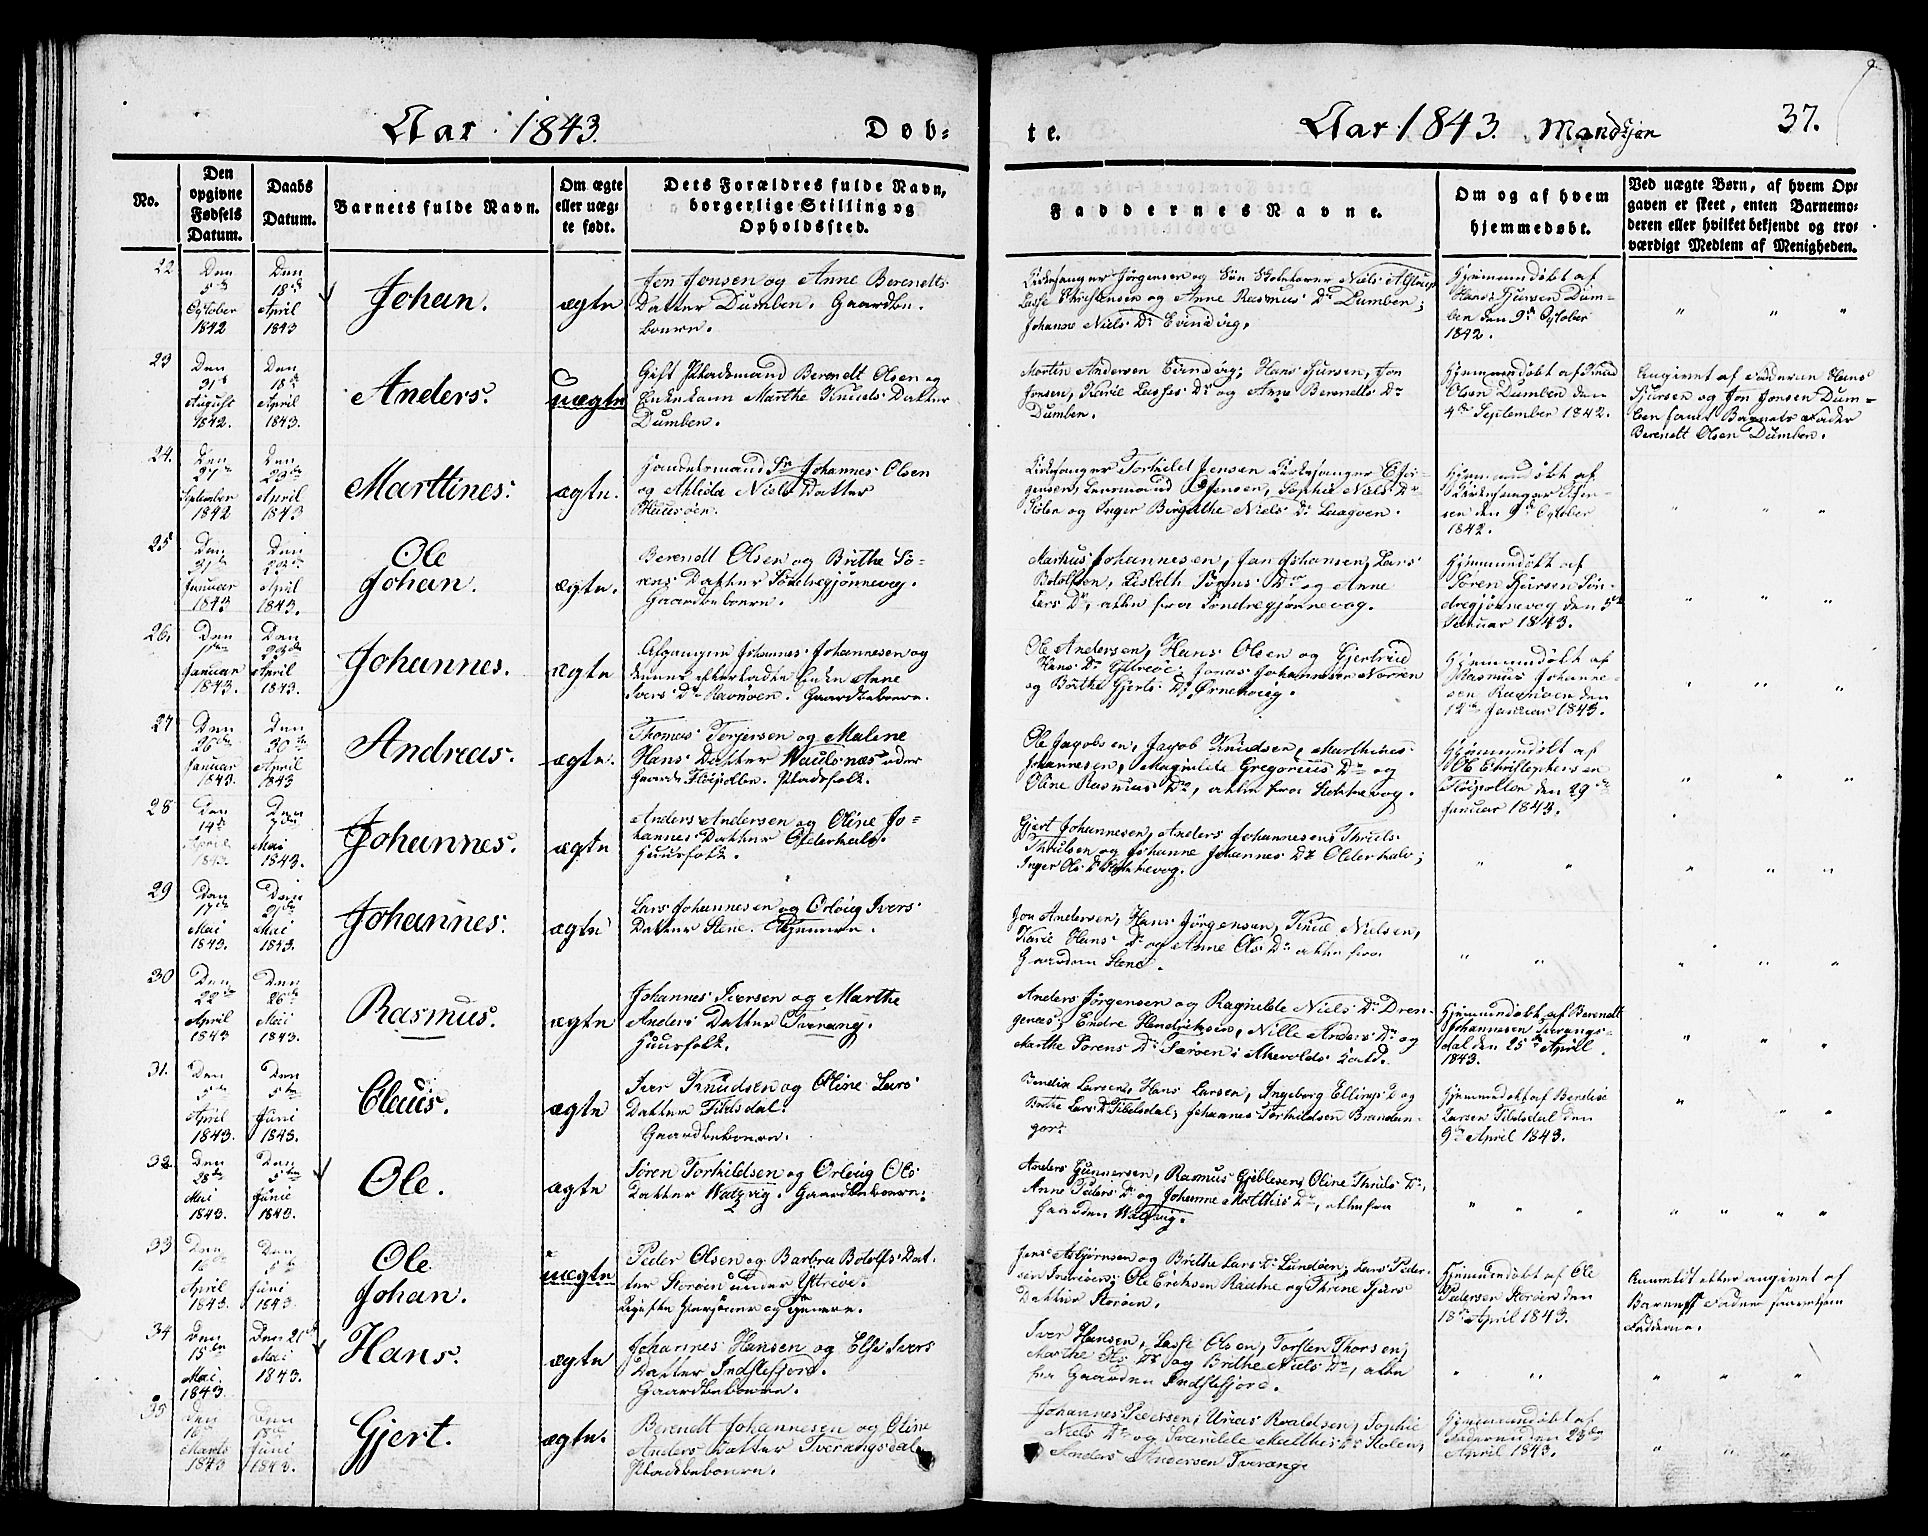 Aar 1843.
Døb=
te.
Aar 1843. Mandkjøn
37.
No.
Den opgivne Fødsels Datum.
Daabs Datum.
Barnets fulde Navn.
Om ægte eller uæg= te født.
Dets Forældres fulde Navn, borgerlige Stilling og Opholdssted.
Faddernes Navne.
Om og af hvem hjemmedøbt.
Ved uægte Børn, af hvem Op= gaven er skeet, enten Barnemo= deren eller hvilket bekjendt og tro= værdigt Medlem af Menigheden.
22
Den 5te October 1842
Den 18de April 1843
Johan.
ægte
Jon Jonsen og Anne Berendts
Datter Dumben. Gaardbe-
boere.
Kirkesanger Jörgensen og Søn Skoleholder Niels
Lasse Christensen og Anne Rasmus Dr Dumben;
Johanne Niels Dr Evindvig.
Hjemmedöbt af
Hans Sjursen Dum-
ben den 9de October
1842.
23
Den 31te August 1842.
Den 18de April 1843.
Anders.
uægte
Gift Pladsmand Berendt Olsen og
Enkekone Marthe Knuds Datter
Dumben.
Morten Andersen Evindvig; Hans Sjursen, Jon
Jonsen, Kari Lasses Dr og Anne Berendts Dr
Dumben.
Hjemmedöbt af Knud
Olsen Dumben den
4de September 1842.
Angivet af Faderen Hans
Sjursen og Jon Jonsen Dum-
ben samt Barnets Fader
Berendt Olsen Dumben.
24.
Den 27de September 1842
Den 23de April 1843
Marttines.
ægte.
Handelsmand Sr Johannes Olsen
og Niels Datter
Kirkesanger Torkild Jensen Kirkesanger
gensen, Sophie Niels Dr
Stölen og Inger Birgitthe Niels Dr
Hjemmedöbt af
Kirkesanger
sen den 9de October
1842.
25
Januar 1843
Den 23de April 1843.
Ole
Johan.
ægte.
Berendt Olsen og Brithe Sö-
rens Datter Söndregjönnevog.
Gaardbeboere.
Markus Johannesen, Jan Johansen, Lars
Botolfsen, Lisbeth Sörens Dr og Anne
Lers Dr, alle fra Söndregjönnevog.
Hjemmedöbt af
Sören Sjursen Sön-
dregjönnevog den 5te
Januar 1843.
26.
Den 1ste Januar 1843.
Den 23de April 1843.
Johannes.
ægte
Afgangne Johannes Johannesen og
dennes efterladte Enke Anne
Ivers Dr Ravnöen. Gaardbeboere.
Ole Andersen, Hans Olsen og Gjertrud
Hans Dr Ytreöe; Jonas Johannesen Norren
og Brithe Gjerts Dr Ørnehoug.
Hjemmedöbt af
Rasmus Johanne-
sen Ravnöen den
12te Januar 1843.
27
Den 26de Januar 1843.
Den 30te April 1843
Andreas.
ægte.
Thomas Torgersen og Malene
Hans Datter Waulsnæs under
Gaard Flolpollen. Pladsfolk.
Ole Jacobsen, Jacob Knudsen, Marthines
Johannesen, Magnilde Gregorius Dr og
Oline Rasmus Dr, alle fra
Hjemmedöbt af
Ole Christophersen
den 29de
Januar 1843.
28
Den 14de April 1843.
Den 7de Mai 1843.
Johannes.
ægte
Anders Andersen og Oline Jo-
hannes Datter Olderhals.
Huusfolk.
Gjert Johannesen, Anders Johannesen, Thruls
Thrulsen og Johanne Johannes Dr Olderhals;
Inger Ols Dr
29
Den 17de Mai 1843.
Den 21de Mai 1843.
Johannes.
ægte
Lars Johannesen og Orlöug Ivers
Datter Stene.
Jon Andersen, Hans Jörgensen, Knud Nielsen,
Kari Hans Dr og Anne Ols Dr alle fra
Gaarden Stene.
30
Den 22de April 1843
Den 26de Mai 1843.
Rasmus.
ægte
Johannes Iversen og Marthe
Anders Datter Tverang.
Huusfolk.
Anders Jörgensen og Ragnilde Niels Dr Dren-
genæs; Endre Hendriksen, Nille Anders Dr og
Marthe Sörens Dr
Hjemmedöbt af Berendt
Johannesen Tverangs-
dal den 25de April
1843.
31.
Den 5te April 1843.
Den 5te Juni 1843.
Claus.
ægte
Iver Knudsen og Oline Lars
Datter Tiblsdal.
Gaardbeboere.
Bendix Larsen, Hans Larsen, Ingeborg Ellings Dr og
Brithe Lars Dr Tiblsdal; Johannes Torkildsen Branden-
gert
Hjemmedöbt af Bendix
Larsen Tiblsdal den
9de April 1843.
32.
Den 28de Mai 1843.
Den 5te Junie 1843.
Ole.
ægte
Sören Torkildsen og Orloug Ols
Datter Watzvig. Gaardbeboere.
Anders Gunnersen, Rasmus Gjeblesen, Oline Thruls Dr,
Anne Peders Dr og Johanne Matthis Dr, alle fra
Gaarden Watzvig.
33
Den 16de April 1843.
Den 5te Juni 1843.
Ole
Johan.
uægte
Peder Olsen og Barbra Botolfs Dat-
ter Storöen under Ytreöe.
Ugifte
Jens Asbjörnsen og Brithe Lars Dr Lundöen; Lars Peder-
sen Ole Eriksen og Thrine Sjurs
Datter Storöen.
Hjemmedöbt af Ole
Pedersen Storöen den
18de April 1843.
Anmeldt efter angivet af
Barnets Fader
Fadderne.
34
Den 15de Mai 1843.
Den 21de Mai 1843.
Hans.
ægte
Johannes Hansen og Else Ivers
Datter Indstefjord.
Gaardbeboere.
Iver Hansen, Lasse Olsen, Torsten Thorsen;
Marthe Ols Dr og Brithe Niels Dr, alle
fra Gaarden Indstefjord.
35
Den 16de Marts 1843
Den 18de Juni 1843.
Gjert.
ægte.
Berendt Johannesen og Oline
Anders Datter Tverangsdal
Pladsbeboere.
Johannes Peersen; Roaldsen, Sophie
Niels Dr og Matthis Dr Stolen;
Anders Andersen Tverange
Hjemmedöbt af
Faderen den 23de
April 1843.